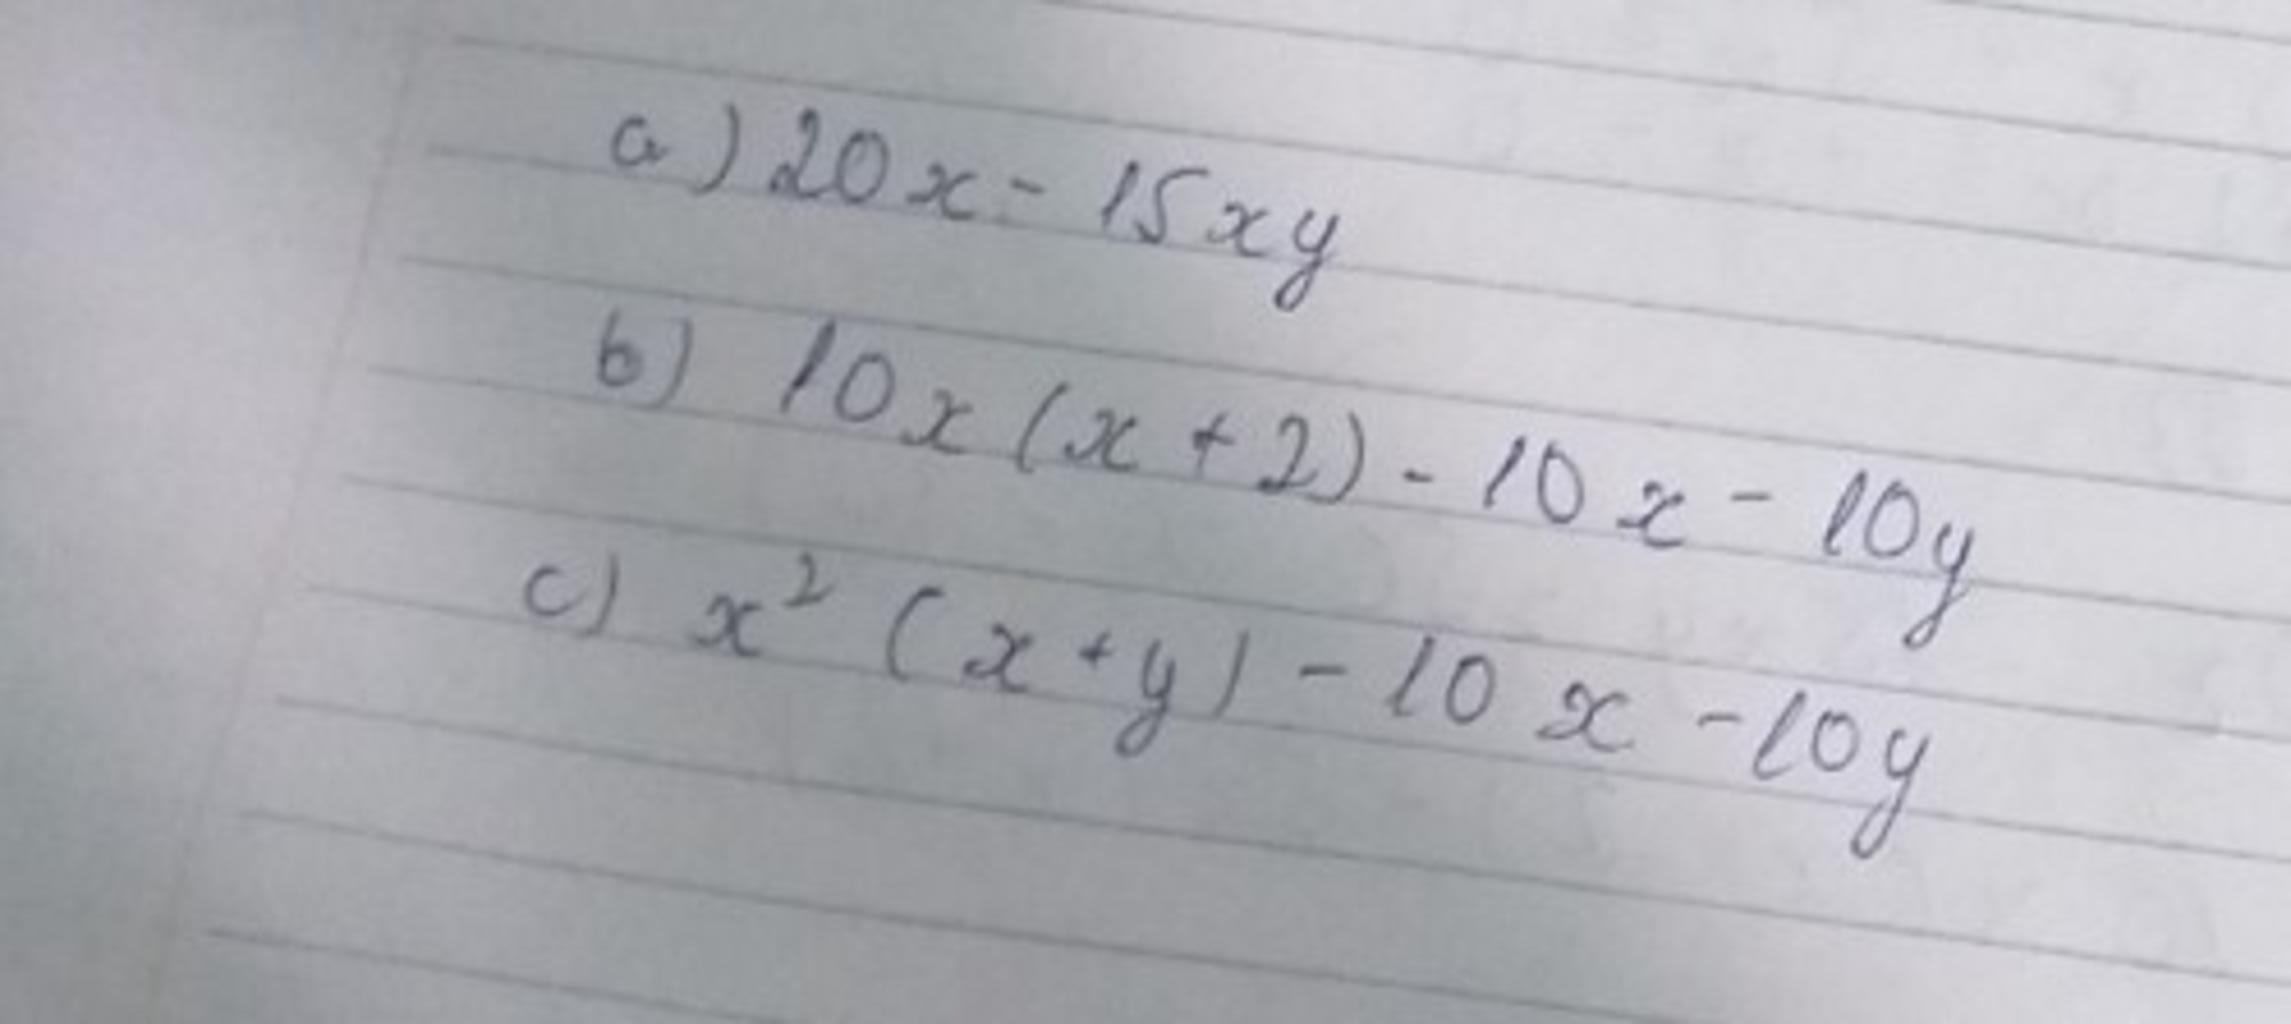 a) 20x - 15xy
b) 10x(x + 2) - 10x - 10y
c) x² (x + y) - 10x - 10y